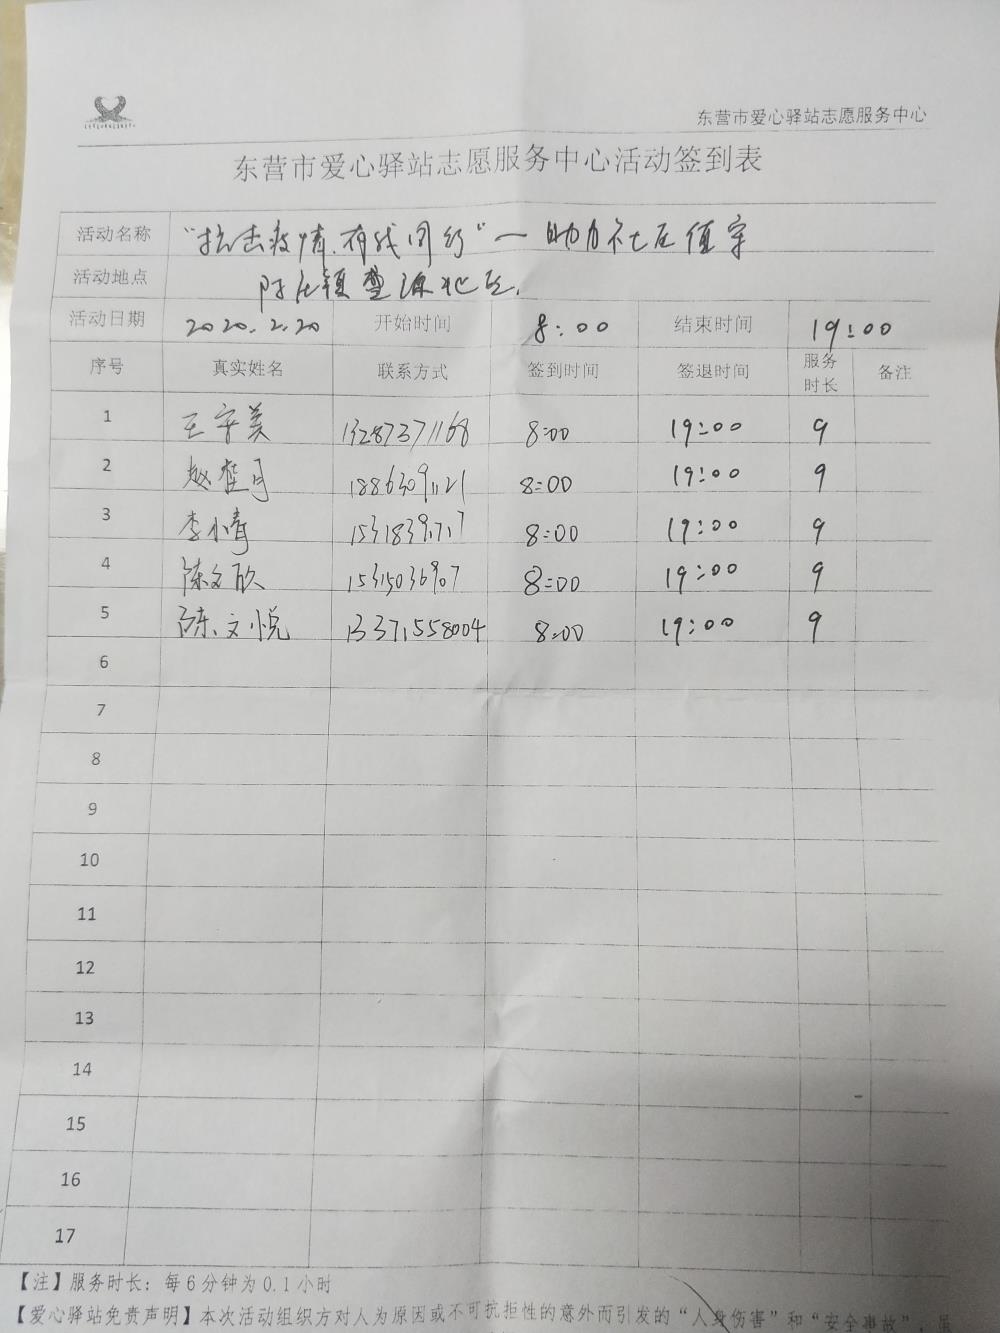 东营市爱心驿站志愿服务中心
东营市爱心驿站志愿服务中心活动签到表
活动名称 “抗击疫情.有我同行”—助力社区值守
活动地点 陈庄镇 地区.
活动日期 2020.2.20 开始时间 8:00 结束时间 19:00
序号 真实姓名 联系方式 签到时间 签退时间 服务时长 备注
1 王守美 13287371168 8:00 19:00 9
2 赵桂月 18863091121 8:00 19:00 9
3 李小青 8:00 19:00 9
4 陈文欣 8:00 19:00 9
5 陈文悦 13371558004 8:00 19:00 9
6
7
8
9
10
11
12
13
14
15
16
17
【注】服务时长：每6分钟为0.1小时
【爱心驿站免责声明】本次活动组织方对人为原因或不可抗拒性的意外而引发的“人身伤害”和“安全事故”，虽